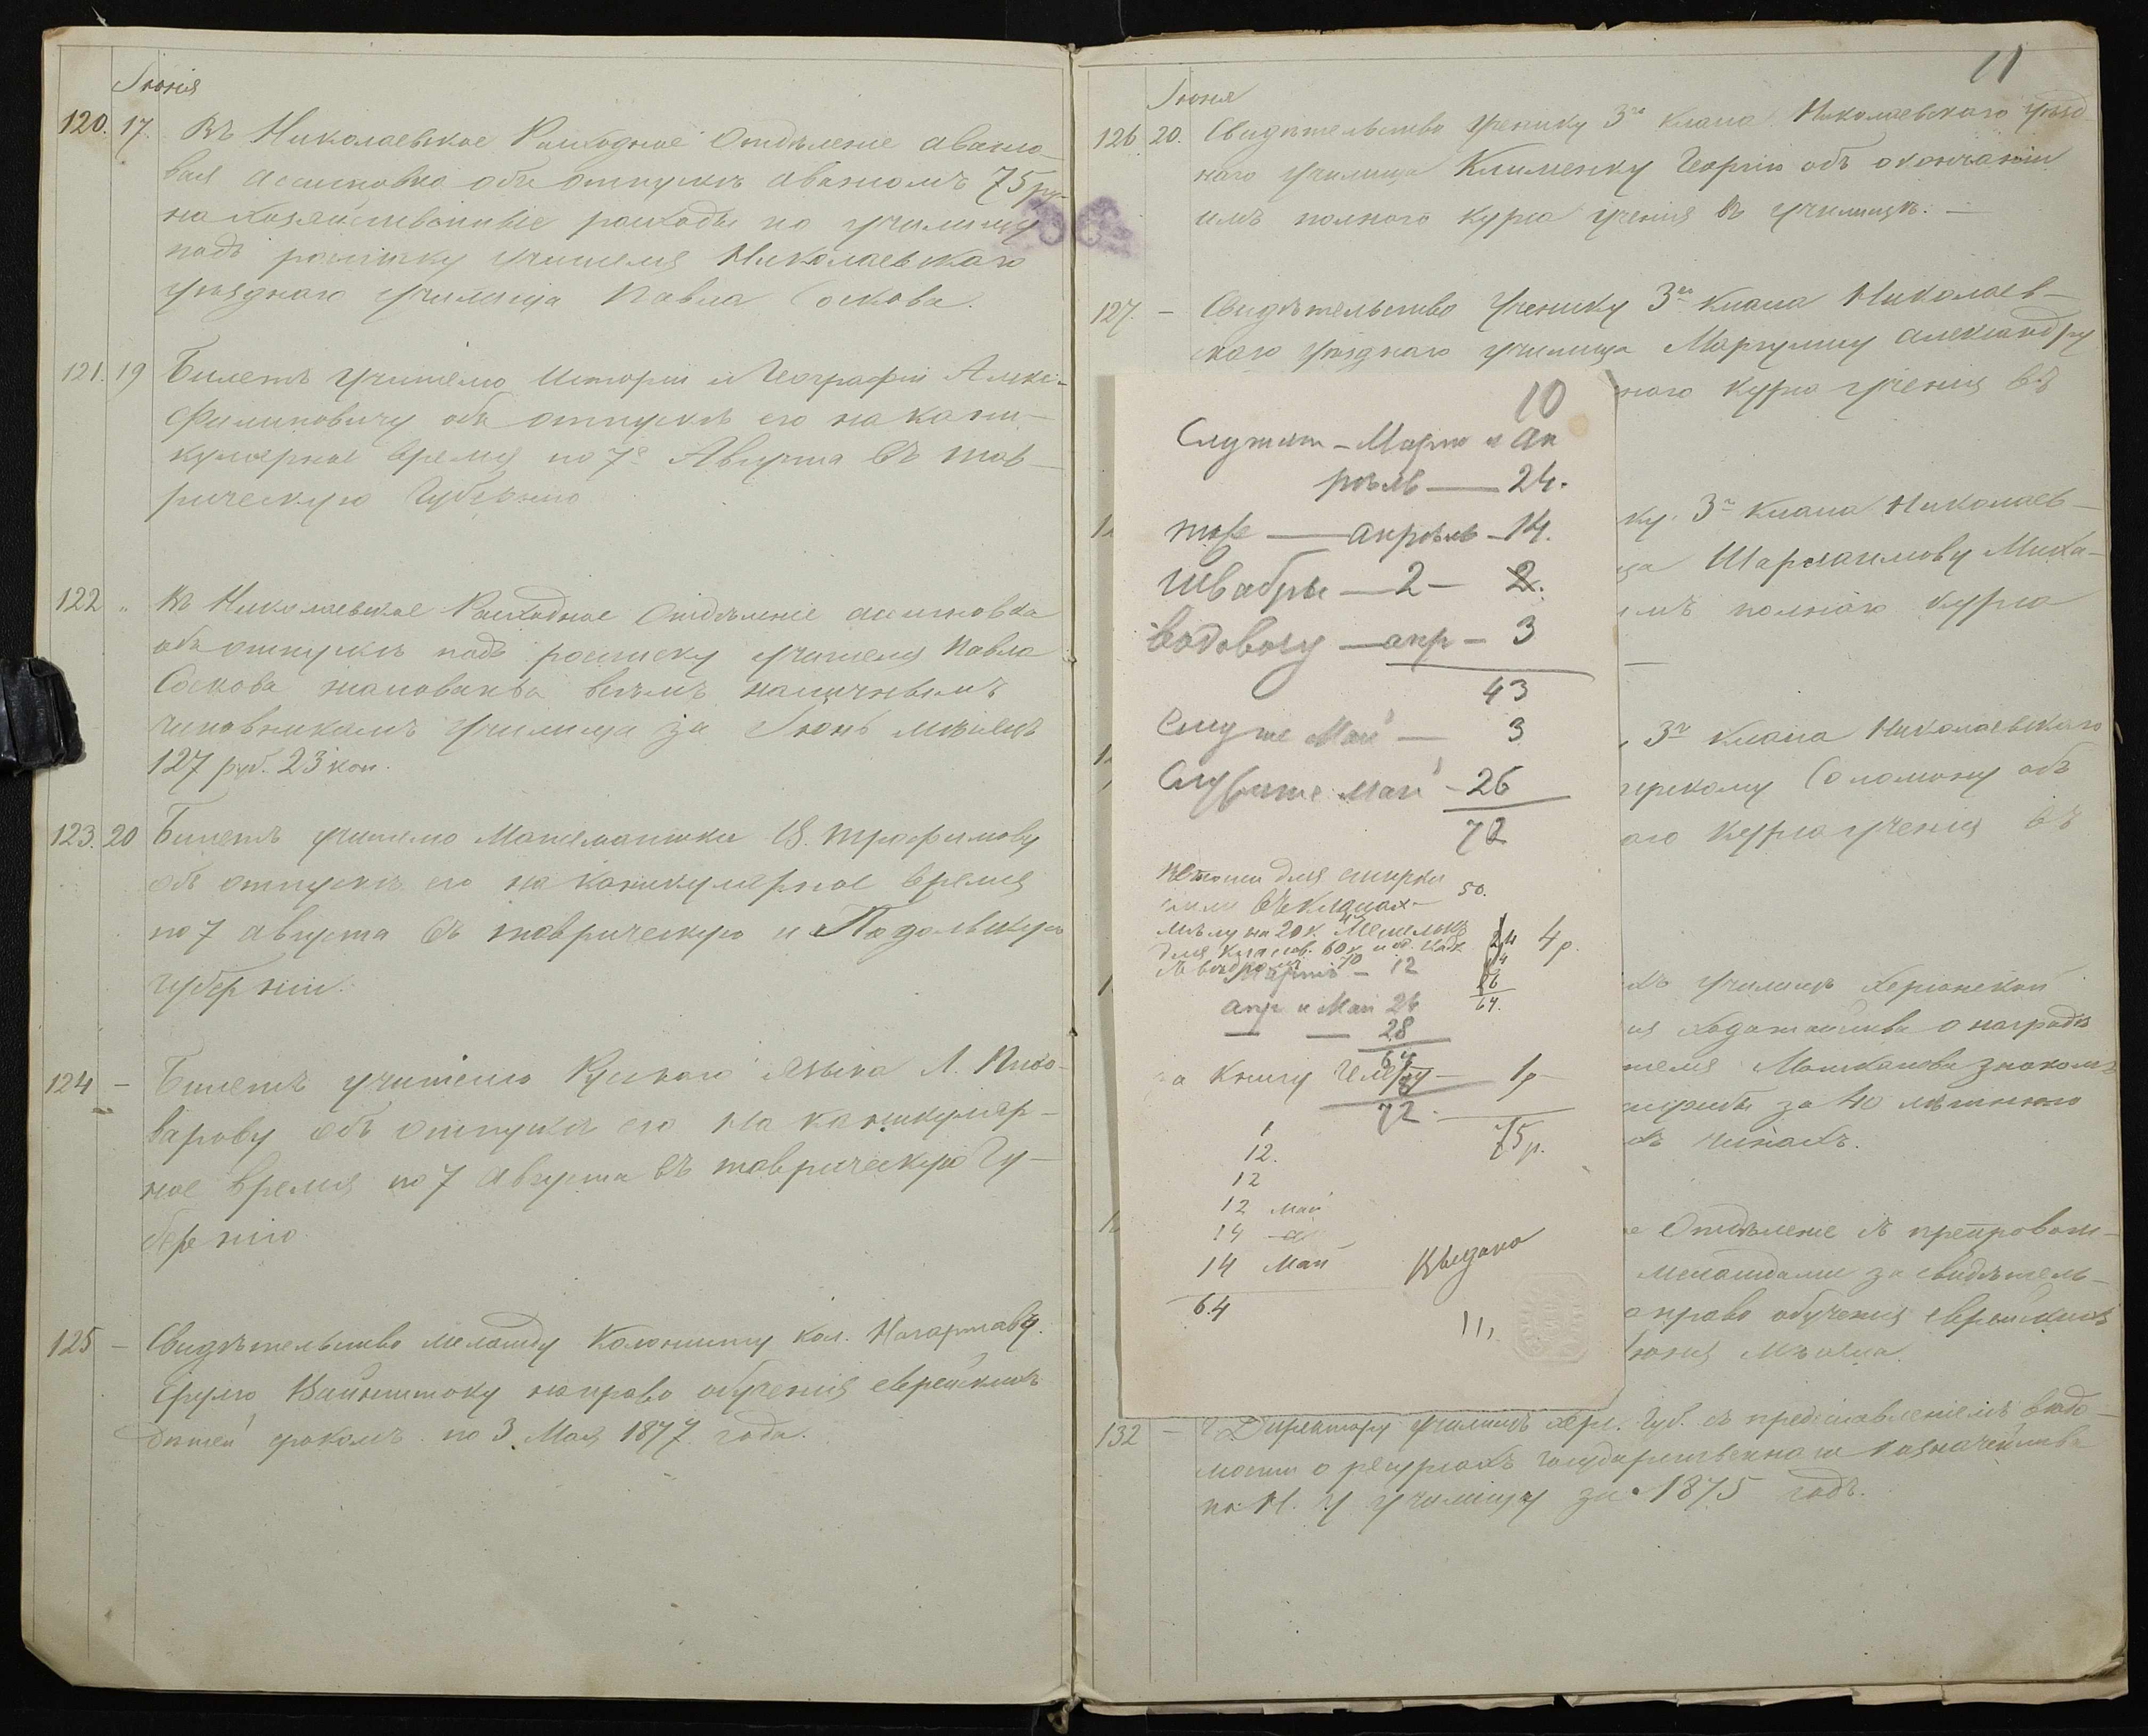 Іюня
120. 17. Въ Николаевское Расходное Отдѣленіе авансо-
вая ассигновка объ отпускѣ авансомъ 75 ру.
на хозяйственные расходы по училищу
подъ росписку учителя Николаевскаго
уѣзднаго училища Павла Соскова.
121. 19 Билетъ учителю Исторіи и Географіи Алекс.
Филиповичу объ отпускѣ его на кани-
кулярное время по 7е Августа въ Тав-
рическую Губернію
122 „ Въ Николаевское Расходное Отдѣленіе ассигновка
объ отпускѣ подъ росписку учителя Павла
Соскова жалованья всѣмъ наличнымъ
чиновникамъ училища за Іюнь мѣсяцъ
127 руб. 23 коп.
123. 20 Билетъ учителю Математики В. Трофимову
объ отпускѣ его на каникулярное время
по 7 августа въ Таврическую и Подольскую
губерніи.
124 — Билетъ учителю Русскаго языка Л. Пиво-
варову объ отпускѣ его на каникуляр-
ное время по 7 Августа въ Таврическую Гу-
бернію
125 — Свидѣтельство меламду Колонисту кол.
Вайнштоку на право обученія еврейскихъ
дѣтей срокомъ по 3 Мая 1877 года.
11
Іюня
126 20. Свидѣтельство ученику 3го класса Николаевскаго уѣзд
наго училища Клименку Георгію объ окончаніи
имъ полнаго курса ученія въ училищѣ. —
127. — Свидѣтельство Ученику 3го класса Николаев-
скаго уѣзднаго училища Маргулису Александру
наго курса ученія въ
ку 3го класса Николаев-
ща Миха-
имъ полнаго курса
—
3го класса Николаевскаго
Соломону объ
аго курса ученія въ
хъ училищъ Херсонской
ходатайства о наградѣ
теля знакомъ
за 40 лѣтнюю
хъ чинахъ.
е Отдѣленіе съ препровож-
меламдами за свидѣтель-
а право обученія еврейскихъ
Іюня мѣсяца.
132 — Г. Директору училищъ Хер. Губ. съ представленіемъ вѣдо-
мости о ресурсахъ государственнаго казначейства
по Н. У училищу за 1875 годъ.
10
Служит — Мартъ и Ап
рѣль — 24.
тоже — апрѣль — 14.
Швабры — 2 — 2.
водовозу — апр — 3
43
Май — 3
Май — 26
72
для стирки
въ классах 50.
мѣлу на 20 к.
для классов. 60 к.
4 р.
24
14
26
64.
Мартъ — 12
апр и Май 24
— — 28
64
72.
а книгу 1 р
75 р.
12.
12
12 май
14
14 Май
64
Выдано